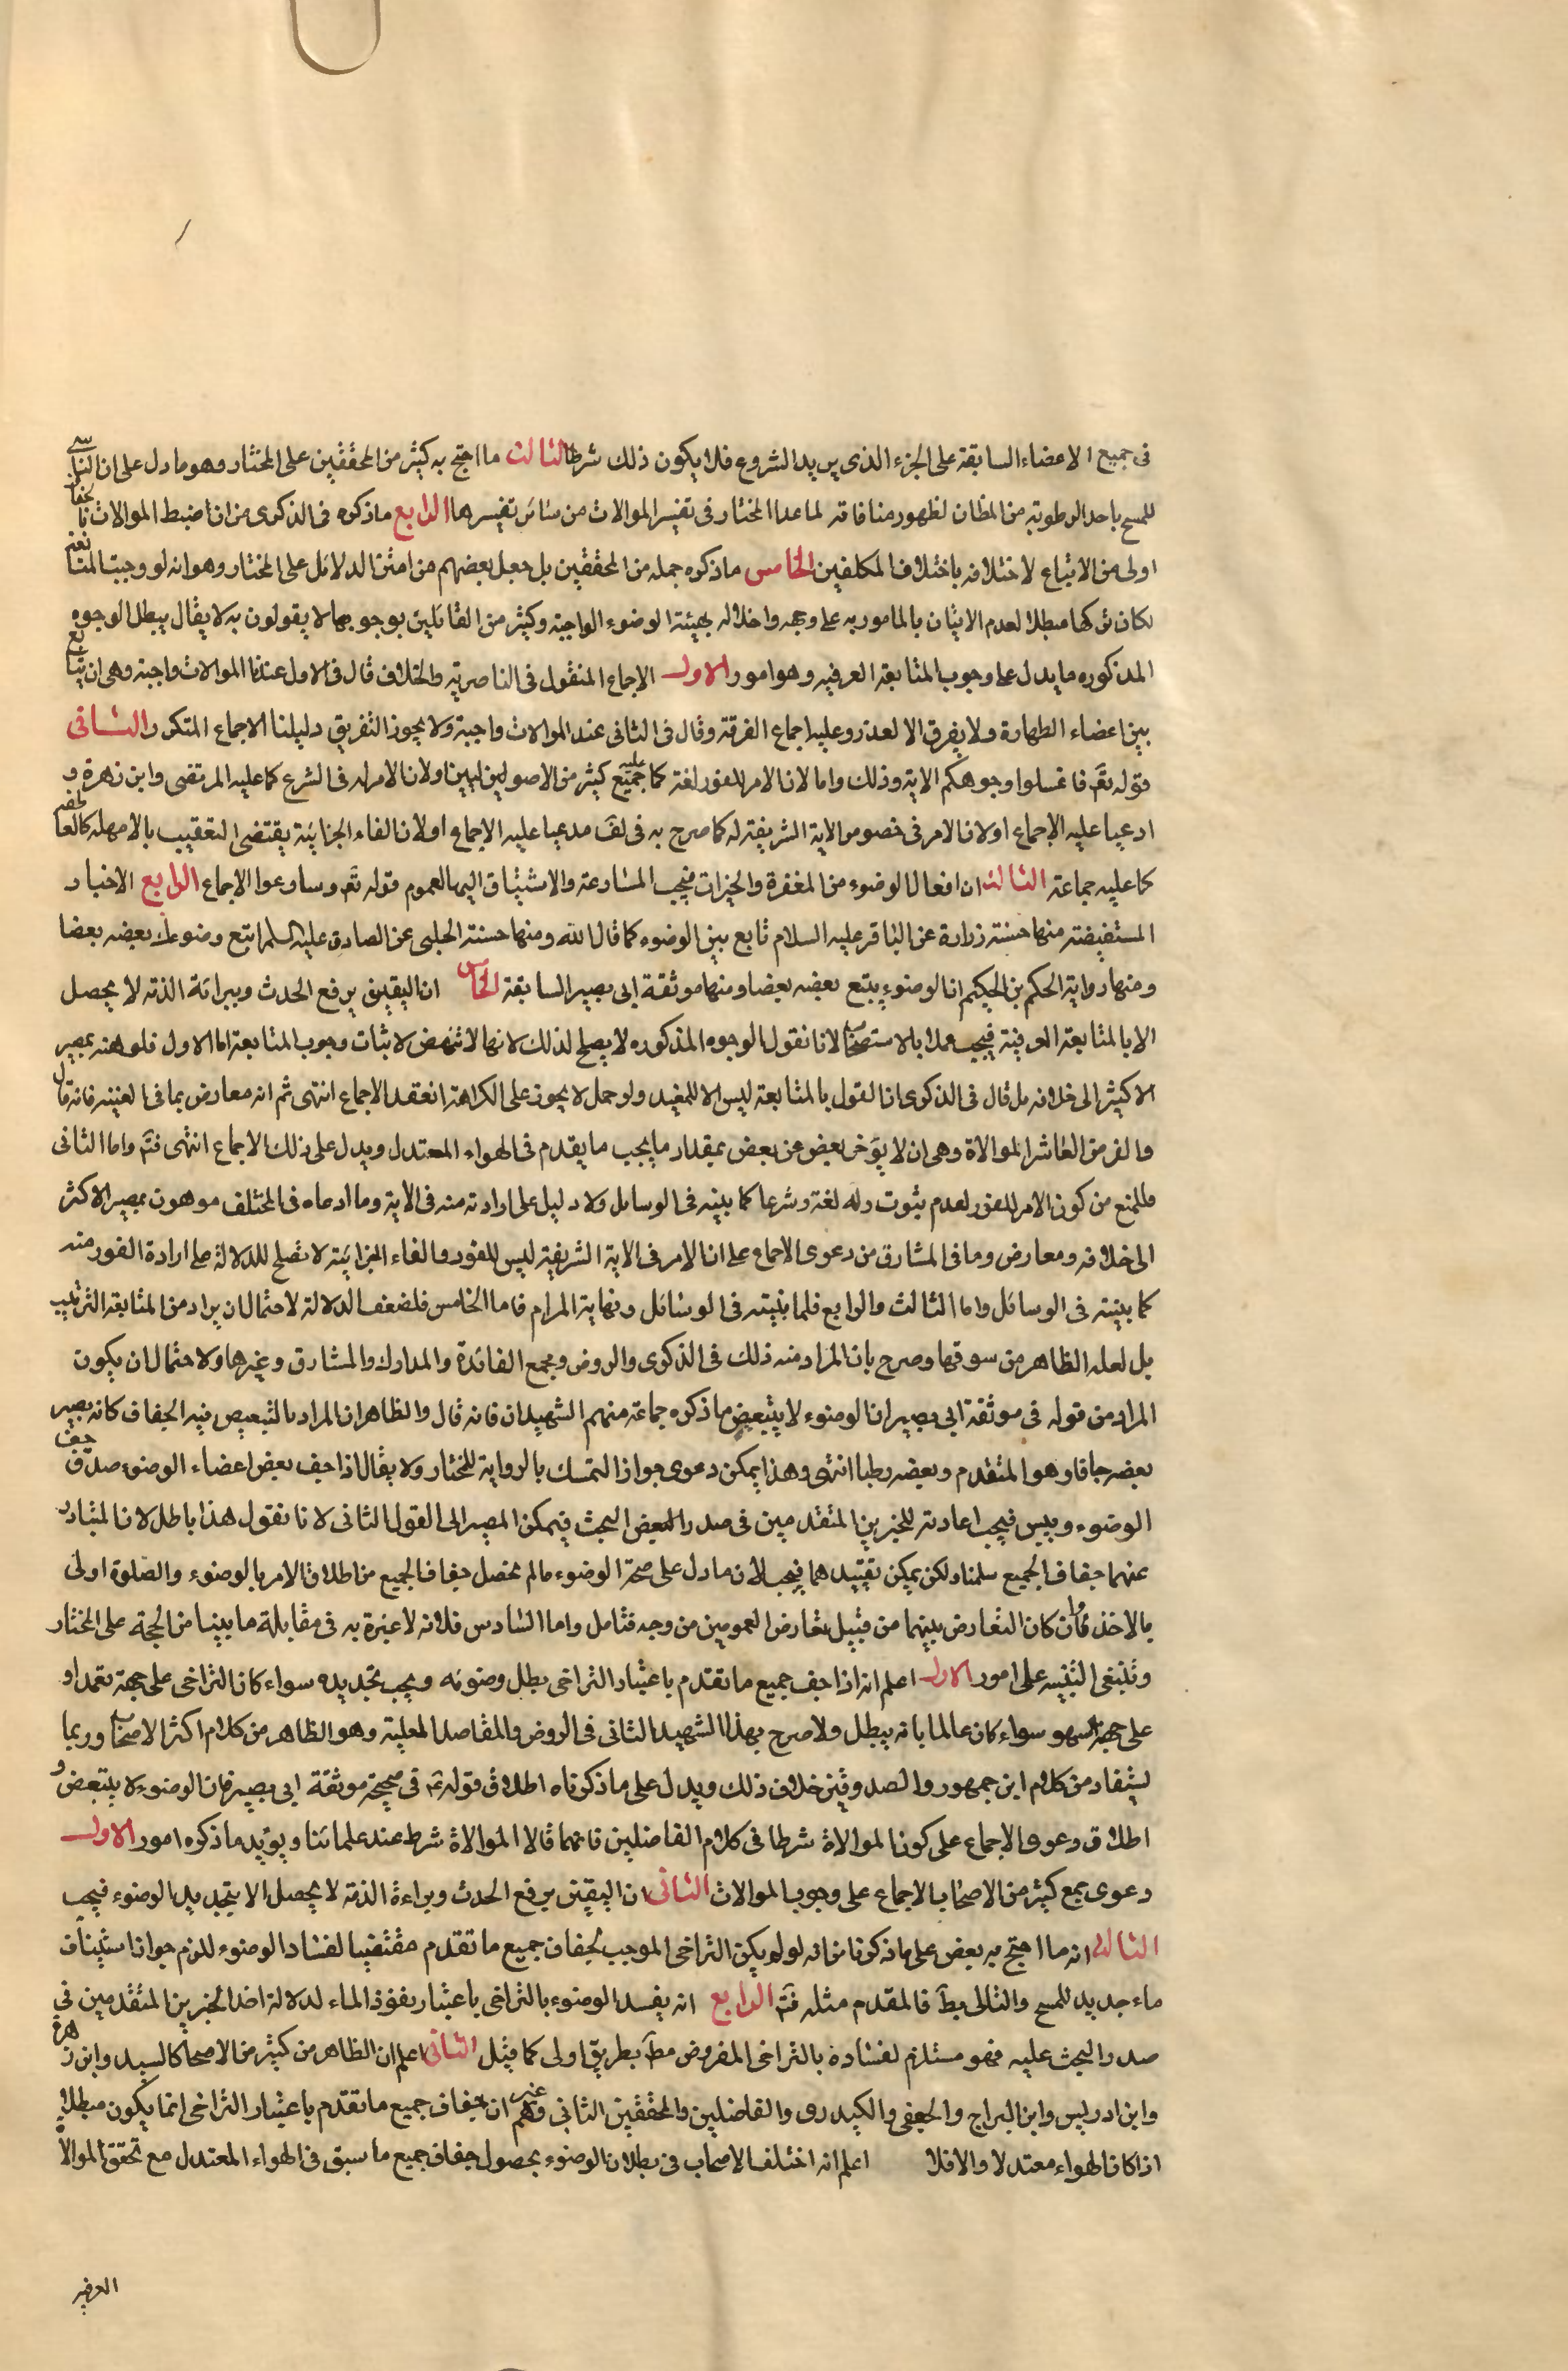 فى جميع الاعضاء السابقة على الجزء الذى يريد الشروع فلا يكون ذلك شرطا الثالث ما احتج به كثير من المحققين على المختار وهو ما دل على ان الناسى
للمسح ياخذ الرطوبة من المظان لظهور منافاته لما عدا المختار فى تفسير الموالات من سائر تفسيرها الرابع ماذكره فى الذكرى من ان ضبط الموالات بالجفاف
اولى من الاتباع لاختلافه باختلاف المكلفين الخامس ماذكره جمله من المحققين بل جعل بعضهم من امتن الدلائل على المختار وهو انه لو وجبت المتابعة
لكان تركها مبطلا لعدم الاتيان بالمامور به على وجهه واخلاله بهيئة الوضوء الواجبة وكثير من القائلين بوجوبها لا يقولون به لا يقال يبطل الوجوه
المذكوره ما يدل على وجوب المتابعة العرفيه وهو امور الاول الاجماع المنقول فى الناصرية والخلاف قال فى الاول عندنا الموالات واجبة وهى ان يتابع
بين اعضاء الطهارة ولا يفرق الا لعذر وعليه اجماع الفرقة وقال فى الثانى عند الموالات واجبة ولا يجوز التفريق دليلنا الاجماع المتكرر الثانى
قوله تع فاغسلوا وجوهكم الاية وذلك واما لان الامر للفور لغة كما عليه جميع كثير من الاصوليين اولان الامر له فى الشرع كما عليه المرتضى وابن زهرة و
ادعيا عليه الاجماع اولان الامر فى خصوص الاية الشريفة له كما صرح به فى لف مدعيا عليه الاجماع اولان الفاء الجزائية يقتضى التعقيب بلا مهله كالعاطفة
كما عليه جماعة الثالث ان افعال الوضوء من المغفرة والخيرات فيجب المسارعة والاستباق اليها لعموم قوله تع وسارعوا الاجماع الرابع الاخبار
المستفيضة منها حسنة زرارة عن الباقر عليه السلام تابع بين الوضوء كما قال الله ومنها حسنة الحلبى عن الصادق عليه السلم اتبع وضوءك بعضه بعضا
ومنها رواية الحكم بن الحكيم ان الوضوء يتبع بعضه بعضا ومنها موثقة ابى بصير السابقة الخامس ان اليقين برفع الحدث وببرائة الذمة لا يحصل
الا بالمتابعة العرفية فيجب عملا بالاستصحاب لانا نقول الوجوه المذكوره لا يصلح لذلك لانها لا تنهض لاثبات وجوب المتابعة اما الاول فلوهنه بمصير
الاكثر الى خلافه بل قال فى الذكرى ان القول بالمتابعة ليس الا للمفيد ولو حمل لا يجوز على الكراهة انعقد الاجماع انتهى ثم انه معارض بما فى الغنية فانه قال
والفرض العاشر الموالاة وهى ان لا يؤخر بعض عن بعض بمقدار ما يجب ما يقدم فى الهواء المعتدل ويدل على ذلك الاجماع انتهى فتم واما الثانى
فللمنع من كون الامر للفور لعدم ثبوت وله لغة وشرعا كما بينه فى الوسائل ولا دليل على ارادته منه فى الاية وما ادعاه فى المختلف موهون بمصير الاكثر
الى خلافه ومعارض وما فى المشارق من دعوى الاجماع على ان الامر فى الاية الشريفة ليس للفور والفاء الجزائية لا تصلح للدلالة على ارادة الفور منه
كما بينته فى الوسائل واما الثالث والرابع فلما بينته فى الوسائل ونهاية المرام فاما الخامس فلضعف الدلالة لاحتمال ان يراد من المتابعة الترتيب
بل لعله الظاهر من سوقها وصرح بان المراد منه ذلك فى الذكرى والروض ومجمع الفائدة والمدارك والمشارق وغيرها ولاحتمال ان يكون
المراد من قوله فى موثقة ابى بصير ان الوضوء لا يتبعض ماذكره جماعة منهم الشهيدان فانه قال والظاهر ان المراد بالتبعيض فيه الجفاف كانه يصير
بعضه جافا وهو المتقدم وبعضه رطبا انتهى وهذا يمكن دعوى جواز التمسك بالرواية للمختار ولا يقال اذا جف بعض اعضاء الوضوء صدق جف
الوضوء ويبس فيجب اعادته للخبرين المتقدمين فى صدر البحث فيمكن المصير الى القول الثانى لانا نقول هذا باطل لان المتبادر
عنهما جفاف الجميع سلمنا ولكن يمكن تقييدهما فيجب لان ما دل على صحة الوضوء مالم يحصل جفاف الجميع من اطلاق الامر بالوضوء والصلوة اولى
بالاخذ وان كان التعارض بينهما من قبيل تعارض العمومين من وجه فتامل واما السادس فلانه لا عبرة به فى مقابلة ما بينا من الحجة على المختار
وينبغى التنبيه على امور الاول اعلم انه اذا جف جميع ما تقدم باعتبار التراخى بطل وضوئه ويجب تجديده سواء كان التراخى على جهة تعمد او
على جهة سهو سواء كان عالما بانه يبطل ولا صرح بهذا الشهيد الثانى فى الروض والمقاصد العلية وهو الظاهر من كلام اكثر الاصحاب وربما
يستفاد من كلام ابن جمهور والصدوقين خلاف ذلك ويدل على ما ذكرناه اطلاق قوله ع فى صحيحة موثقة ابى بصير فان الوضوء لا يتبعض و
اطلاق دعوى الاجماع على كون الموالاة شرطا فى كلام الفاضلين فانهما قالا الموالاة شرط عند علمائنا ويؤيد ما ذكره امور الاول
دعوى جمع كثير من الاصحاب الاجماع على وجوب الموالات الثانى ان اليقين برفع الحدث وبراءة الذمة لا يحصل الا بتجديد الوضوء فيجب
الثالث انه ما احتج به بعض على ما ذكرنا من انه لو لم يكن التراخى الموجب لجفاف جميع ما تقدم مقتضيا لفساد الوضوء للزم جواز استيناف
ماء جديد للمسح والتالى بط فالمقدم مثله فتم الرابع انه يفسد الوضوء بالتراخى باعتبار نفوذ الماء لدلالة احد الخبرين المتقدمين فى
صدر البحث عليه فهو مستلزم لفساده بالتراخى المفروض مط بطريق اولى كما قيل الثانى اعلم ان الظاهر من كثير من الاصحاب كالسيد وابن زهرة
وابن ادريس وابن البراج والجعفى والكيدرى والفاضلين والمحققين الثانى وغيرهم ان جفاف جميع ما تقدم باعتبار التراخى انما يكون مبطلا
اذا كان الهواء معتدلا والا فلا اعلم انه اختلف الاصحاب فى بطلان الوضوء بحصول جفاف جميع ما سبق فى الهواء المعتدل مع تحقق الموالاة
العرفيه